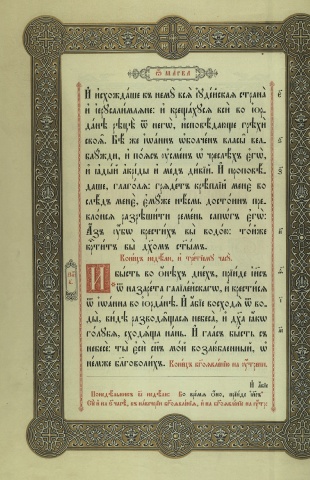 Ѿ МАРКА
И҆ и҆схожда́ше къ немꙋ̀ всѧ̀ і҆ꙋде́йскаѧ страна̀
и҆ і҆ерꙋсали́млѧне: и҆ креща́хꙋсѧ всѝ во і҆ор-
да́нѣ рѣцѣ̀ ѿ негѡ̀, и҆сповѣ́дающе грѣхѝ
своѧ̑. Бѣ́ же і҆ѡа́ннъ ѡ҆болче́нъ власы̑ вел-
блꙋ́жди, и҆ по́ѧсъ ᲂу҆сме́нъ ѡ҆ чре́слѣхъ є҆гѡ̀,
и҆ ꙗ҆ды́й а҆крі́ды и҆ ме́дъ ди́вїй. И҆ проповѣ́-
даше, глаго́лѧ: грѧде́тъ крѣ́плїй менє̀ во
слѣ́дъ менє̀, є҆мꙋ́же нѣ́смь досто́инъ пре-
кло́нсѧ разрѣши́ти реме́нь сапѡ́гъ є҆гѡ̀:
А҆́зъ ᲂу҆́бѡ крести́хъ вы̀ водо́ю: то́й же
крⷭ҇ти́тъ вы̀ дх҃омъ ст҃ы́мъ.
Коне́цъ недѣ́ли, и҆ тре́тїемꙋ часꙋ̀.
И҆ бы́сть во ѻ҆́нѣхъ дне́хъ, прїи́де і҆и҃съ
ѿ назаре́та галїле́йскагѡ, и҆ крести́сѧ
ѿ і҆ѡа́нна во і҆орда́нѣ. И҆ а҆́бїе восходѧ̀ ѿ во-
ды̀, ви́дѣ разводѧ́щасѧ небеса̀, и҆ дх҃а ꙗ҆́кѡ
го́лꙋбѧ, сходѧ́ща на́нь. И҆ гла́съ бы́сть съ
небесѐ: ты̀ є҆сѝ сн҃ъ мо́й возлю́бленный, ѡ҆
не́мже благоволи́хъ. Коне́цъ бг҃оѧвле́нїю на ᲂу҆́трени.
И҆ а҆́бїе